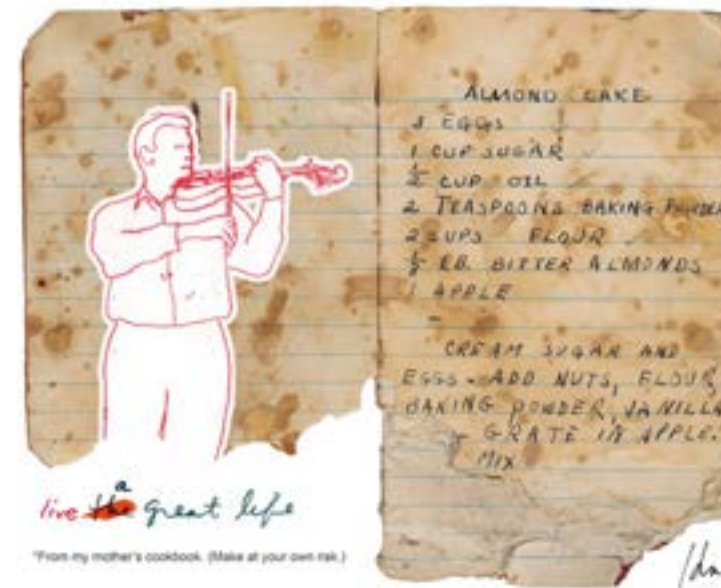 ALMOND CAKE
3 EGGS
1 CUP SUGAR
½ CUP OIL
2 TEASPOONS BAKING POWDER
2 CUPS FLOUR
LB. BITTER ALMONDS
1 APPLE
CREAM SUGAR AND
EGGS. ADD NUTS, FLOUR,
BAKING POWDER, VANILLA
GRATE IN APPLE.
MIX
a
live the great life
*From my mother's cookbook. (Make at your own risk.)